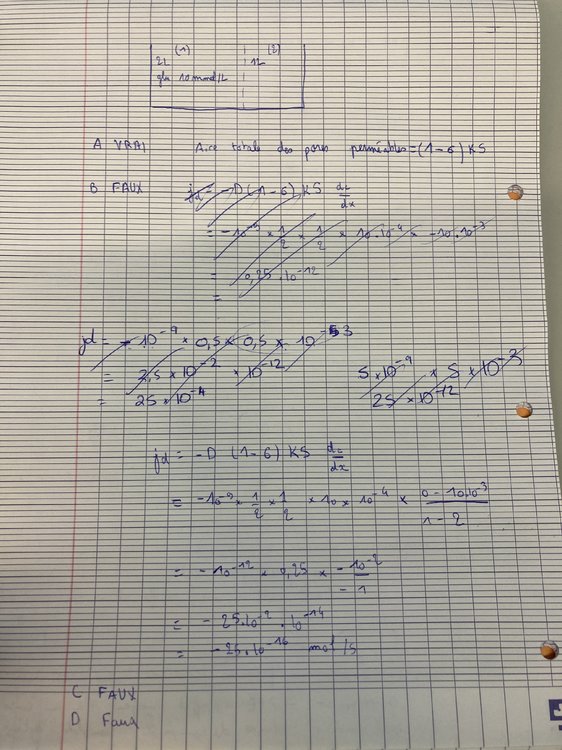 (1) (2)
2L 1L
glu 10 mmol/L
A VRAI Aire totale des pores perméables = (1-6) KS
B FAUX jd = -D (1-6) KS dc/dx
= -10⁻⁹ × 1/2 × 1/2 × 10·10⁻⁴ × -10·10⁻³
= 0,25 · 10⁻¹²
=
jd = - 10⁻⁹ × 0,5 × 0,5 × 10⁻³
= 2,5 × 10⁻² × 10⁻¹² 5 × 10⁻⁹ × 5 × 10⁻³
= 25 × 10⁻⁴ 25 × 10⁻¹²
jd = -D (1-6) KS dc/dx
= -10⁻⁹ × 1/2 × 1/2 × 10 × 10⁻⁴ × (0 - 10·10⁻³)/(1 - 2)
= -10⁻¹² × 0,25 × -10⁻²/-1
= - 25·10⁻² · 10⁻¹⁴
= - 25·10⁻¹⁶ mol/s
C FAUX
D Faux